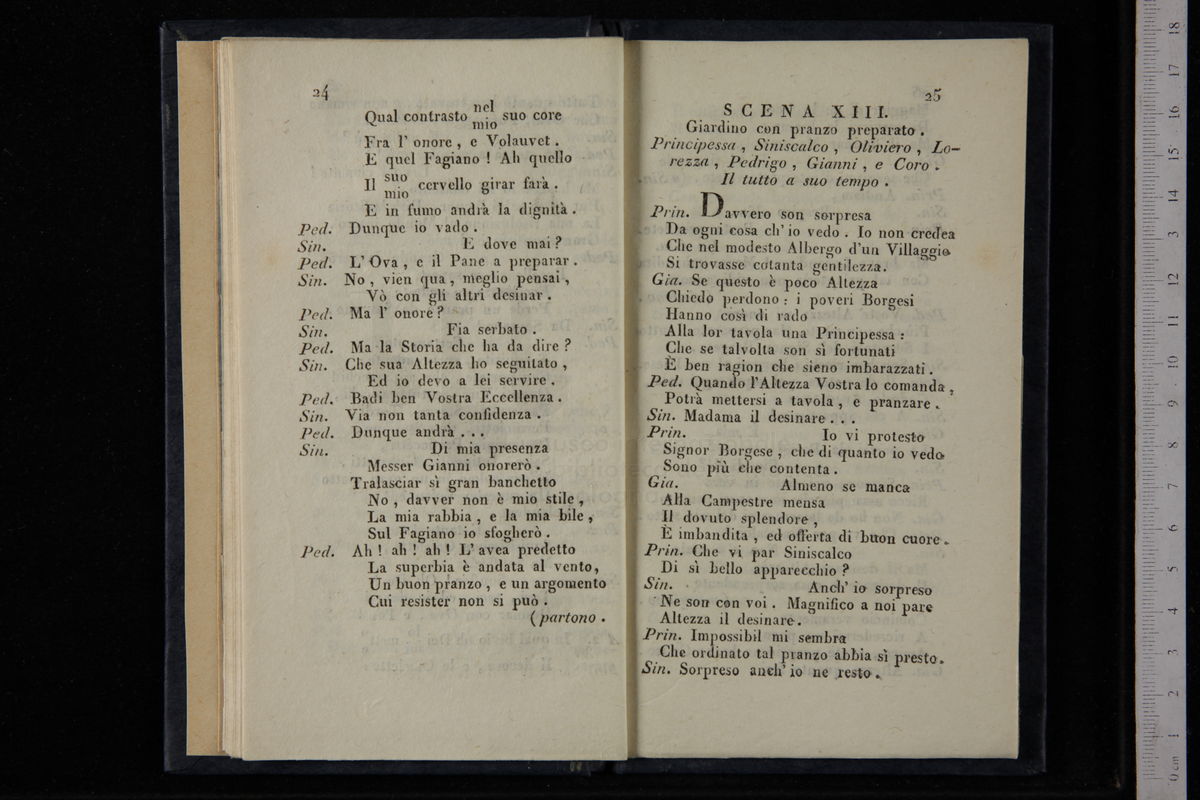 24
Qual contrasto nel mio suo core
Fra l' onore , e Volauvet .
E quel Fagiano ! Ah quello
Il suo mio cervello girar farà .
E in fumo andrà la dignità .
Ped. Dunque io vado .
Sin. E dove mai ?
Ped. L' Ova , e il Pane a preparar .
Sin. No , vien qua , meglio pensai ,
Vò con gli altri desinar .
Ped. Ma l' onore ?
Sin. Fia serbato .
Ped. Ma la Storia che ha da dire ?
Sin. Che sua Altezza ho seguitato ,
Ed io devo a lei servire .
Ped. Badi ben Vostra Eccellenza .
Sin. Via non tanta confidenza .
Ped. Dunque andrà . . .
Sin. Di mia presenza
Messer Gianni onorerò .
Tralasciar sì gran banchetto
No , davver non è mio stile ,
La mia rabbia , e la mia bile ,
Sul Fagiano io sfogherò .
Ped. Ah ! ah ! ah ! L' avea predetto
La superbia è andata al vento,
Un buon pranzo , e un argomento
Cui resister non si può .
(partono .
25
SCENA XIII.
Giardino con pranzo preparato .
Principessa , Siniscalco , Oliviero , Lo-
rezza , Pedrigo , Gianni , e Coro .
Il tutto a suo tempo .
Prin. Davvero son sorpresa
Da ogni cosa ch' io vedo . Io non credea
Che nel modesto Albergo d'un Villaggio
Si trovasse cotanta gentilezza.
Gia. Se questo è poco Altezza
Chiedo perdono : i poveri Borgesi
Hanno così di rado
Alla lor tavola una Principessa :
Che se talvolta son sì fortunati
È ben ragion che sieno imbarazzati .
Ped. Quando l'Altezza Vostra lo comanda ,
Potrà mettersi a tavola , e pranzare .
Sin. Madama il desinare . . .
Prin. Io vi protesto
Signor Borgese , che di quanto io vedo
Sono più che contenta .
Gia. Almeno se manca
Alla Campestre mensa
Il dovuto splendore ,
È imbandita , ed offerta di buon cuore .
Prin. Che vi par Siniscalco
Di sì bello apparecchio ?
Sin. Anch' io sorpreso
Ne son con voi . Magnifico a noi pare
Altezza il desinare .
Prin. Impossibil mi sembra
Che ordinato tal pranzo abbia sì presto.
Sin. Sorpreso anch' io ne resto .
0 cm 1 2 3 4 5 6 7 8 9 10 11 12 13 14 15 16 17 18